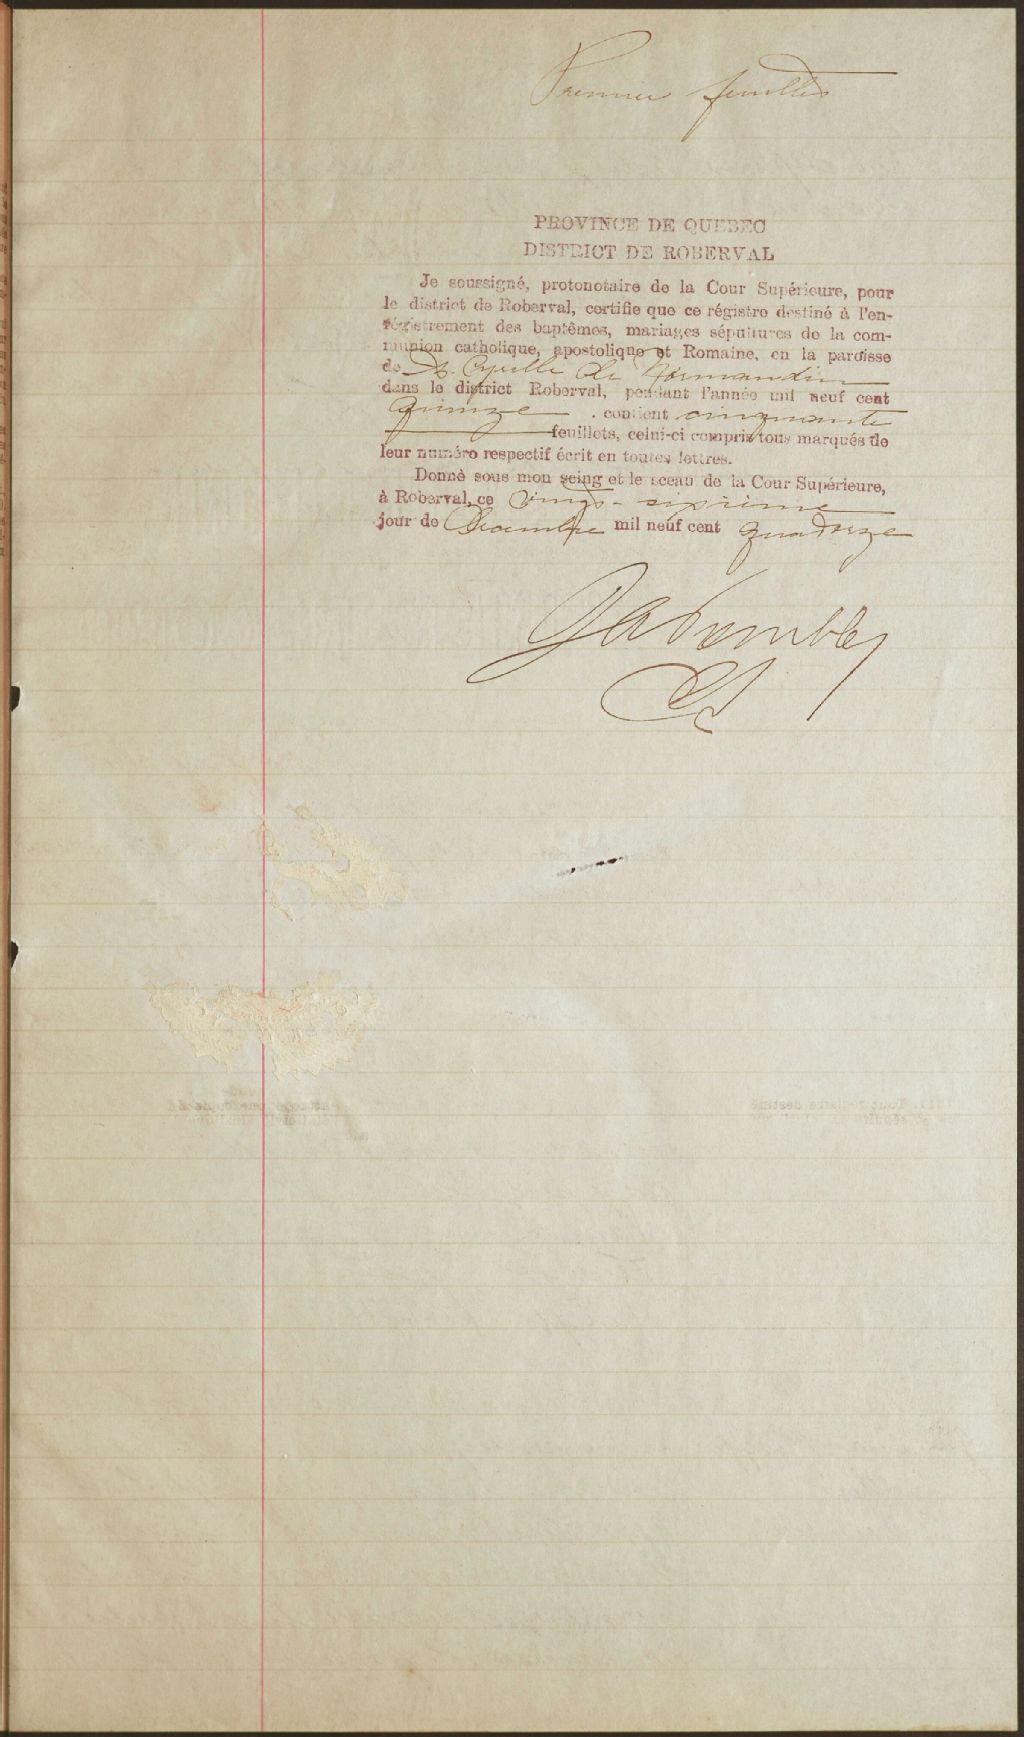 Premier feuillet
PROVINCE DE QUEBEC
DISTRICT DE ROBERVAL
Je soussigné, protonotaire de la Cour Supérieure, pour
le district de Roberval, certifie que ce régistre destiné à l'en-
régistrement des baptêmes, mariages sépultures de la com-
munion catholique, apostolique et Romaine, en la paroisse
de St. Cyrille de Normandin
dans le district Roberval, pendant l'année mil neuf cent
quinze . contient cinquante
feuillets, celui-ci compris tous marqués de
leur numéro respectif écrit en toutes lettres.
Donné sous mon seing et le sceau de la Cour Supérieure,
à Roberval, ce vingt-sixième
jour de Décembre mil neuf cent quatorze